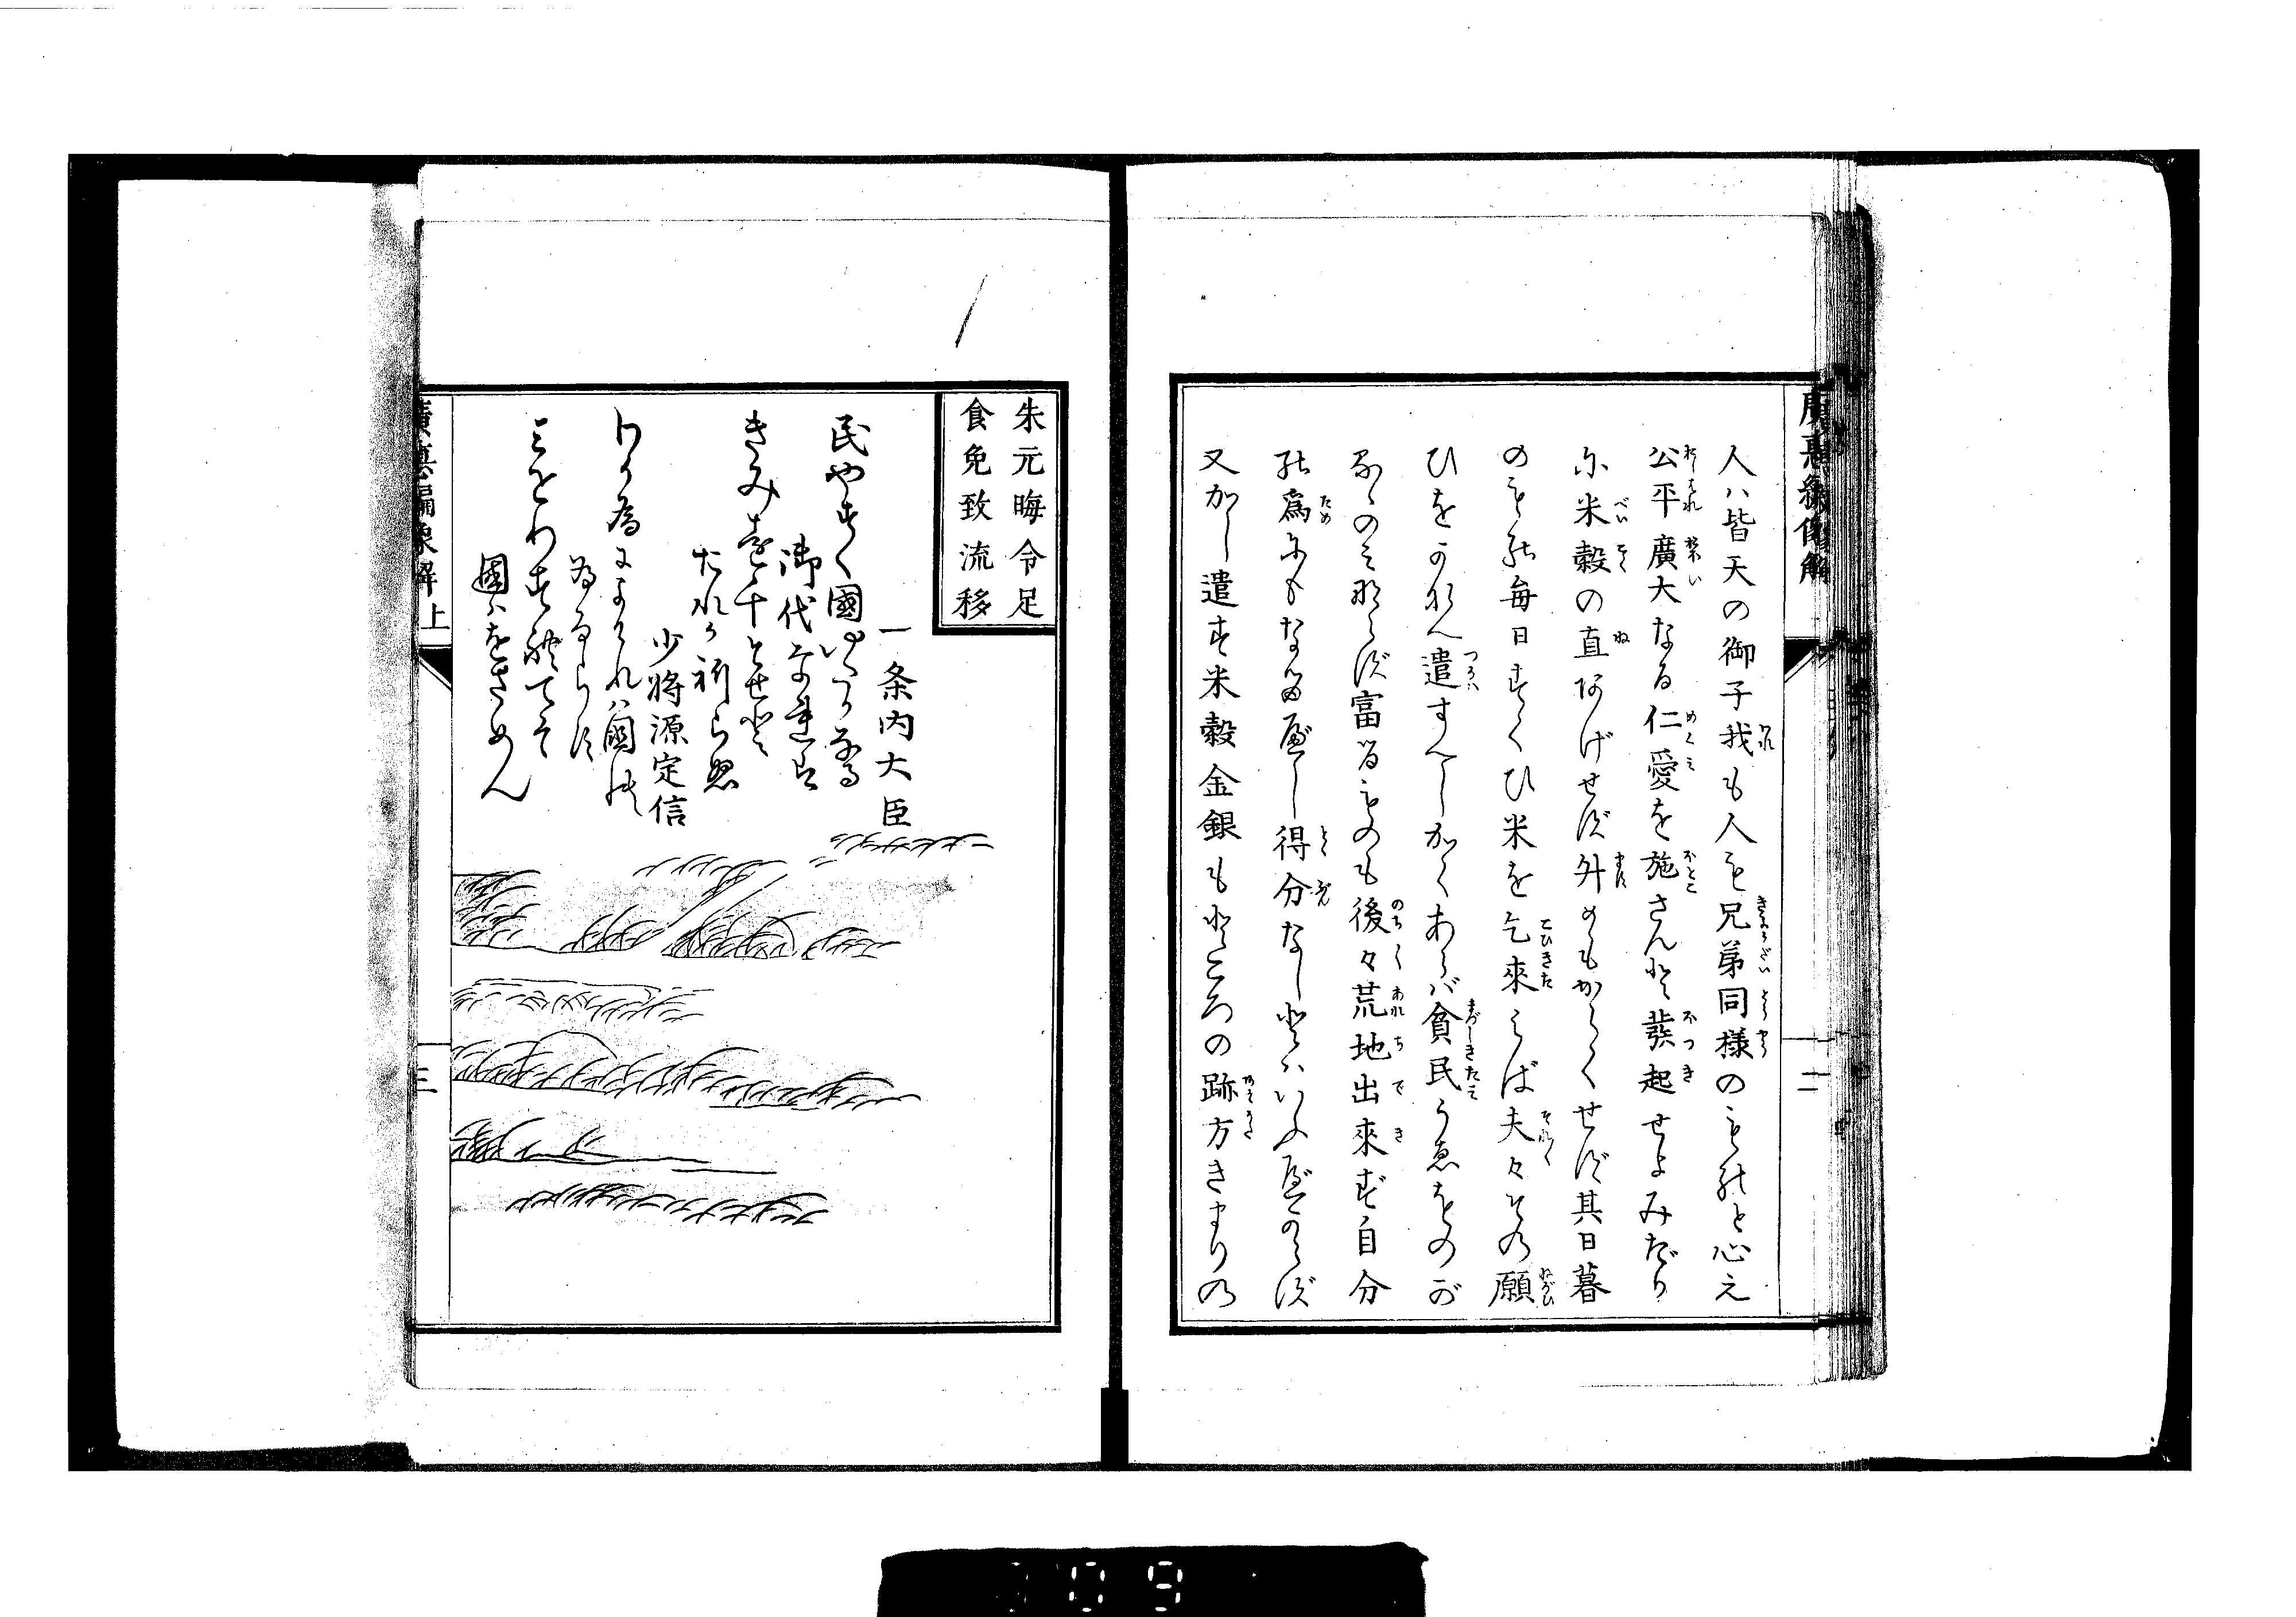 廣惠編像解
人ハ皆天の御子我も人も兄弟同様のものと心え
公平廣大なる仁愛を施さんと發起せよみだり
に米穀の直あげせず外のもかしくせず其日暮
のもの毎日すくひ米を乞來らば夫々その願
ひをかなへ遣すべしかくあらバ貧民うゑをのが
るゝのみならず富るものも後々荒地出來ず自分
の為にもなるべし得分なしとハいふべからず
又かし遣す米穀金銀もところの跡方きまりの
二
朱元晦令足
食免致流移
一条内大臣
民やすく國ゆたかなる
御代なれば
きみを千とせと
たれか祈らぬ
少將源定信
わか為によかれハ國の
為ならす
みをわすれてそ
國ハをさめん
廣惠編像解 上
三